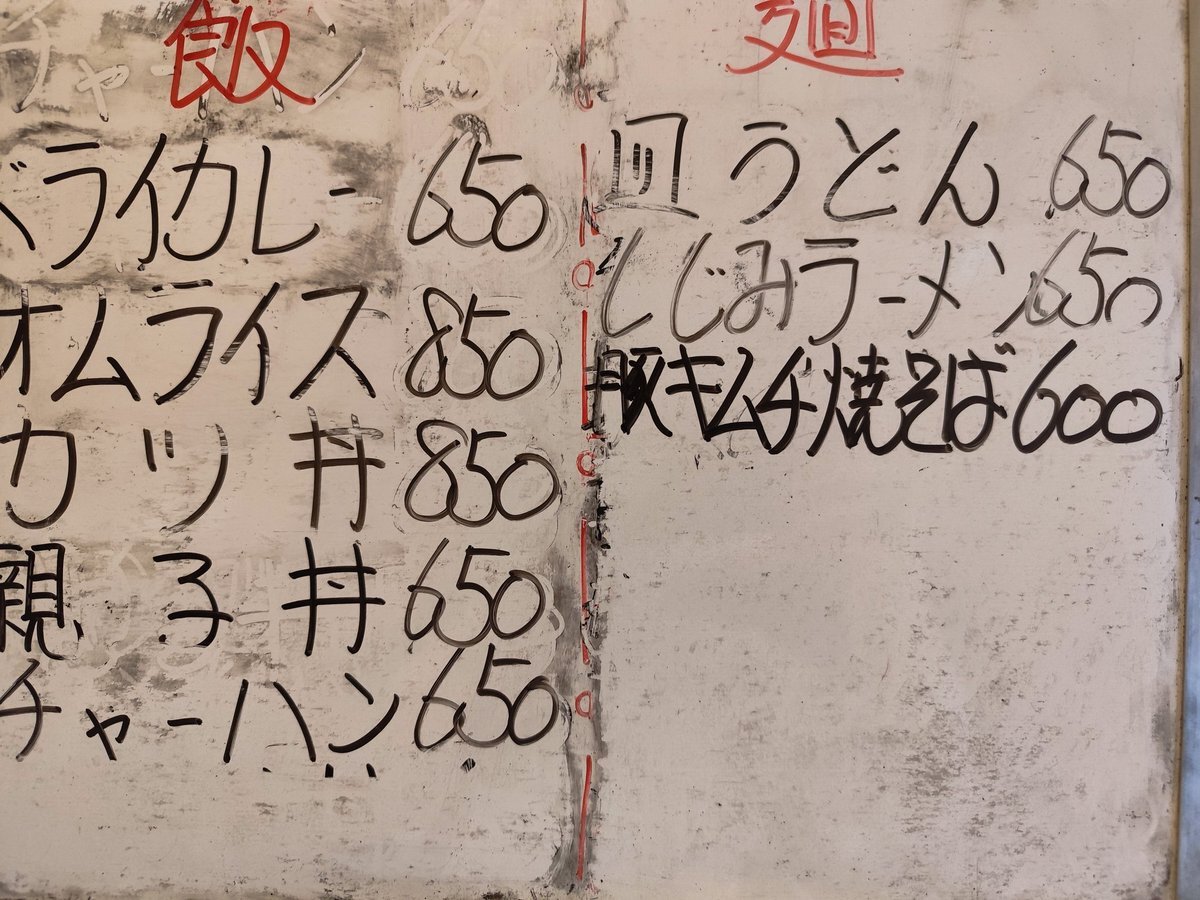 飯
ドライカレー 650
オムライス 850
カツ丼 850
親子丼 650
チャーハン 650
麺
皿うどん 650
しじみラーメン 650
豚キムチ焼そば 600